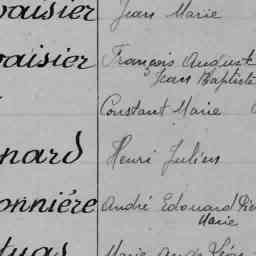 vaisier Jean Marie
vaisier François Auguste
Jean Baptiste
Constant Marie
nard Henri Julien
onnière André Edouard
Marie
Marie Ange